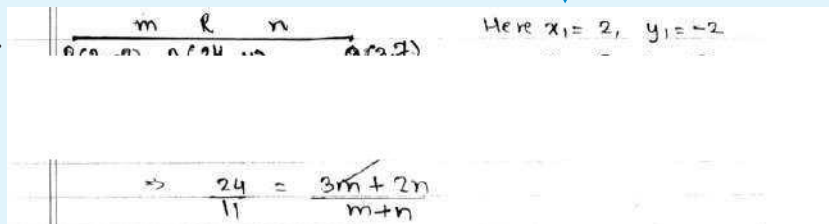 m R n
Here x₁ = 2, y₁ = -2
⇒ 24/11 = 3m + 2n / m+n